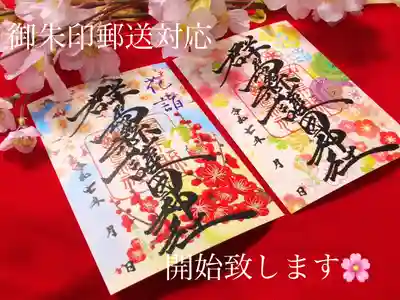 御朱印郵送対応
花詣
群馬縣護國神社
令和七年 月 日
群馬縣護國神社
令和七年 月 日
開始致します🌸